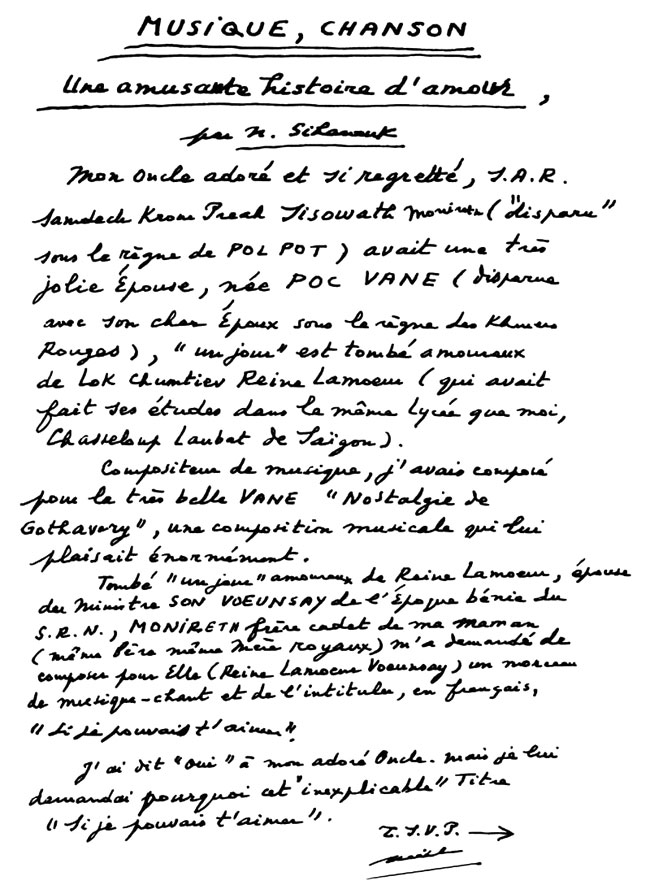 MUSIQUE, CHANSON
Une amusante histoire d'amour,
par N. Sihanouk
Mon Oncle adoré et si regretté, S.A.R.
Samdech Krom Preah Sisowath Monireth ("disparu"
sous le règne de POL POT) avait une très
jolie Épouse, née POC VANE (disparue
avec son cher Époux sous le règne des Khmers
Rouges), "un jour" est tombé amoureux
de Lok Chumtiev Reine Lamoeur (qui avait
fait ses études dans le même Lycée que moi,
Chasseloup Laubat de Saïgon).
Compositeur de musique, j'avais composé
pour la très belle VANE "Nostalgie de
Gothavery", une composition musicale qui lui
plaisait énormément.
Tombé "un jour" amoureux de Reine Lamoeur, épouse
du Ministre SON VOEUNSAY de l'Époque bénie du
S.R.N., MONIRETH frère cadet de ma Maman
(même Père même Mère royaux) m'a demandé de
composer pour Elle (Reine Lamoeur Voeunsay) un morceau
de musique-chant et de l'intituler, en français,
"Si je pouvais t'aimer".
J'ai dit "oui" à mon adoré Oncle. Mais je lui
demandai pourquoi cet "inexplicable" Titre
"Si je pouvais t'aimer".
T.S.V.P. →